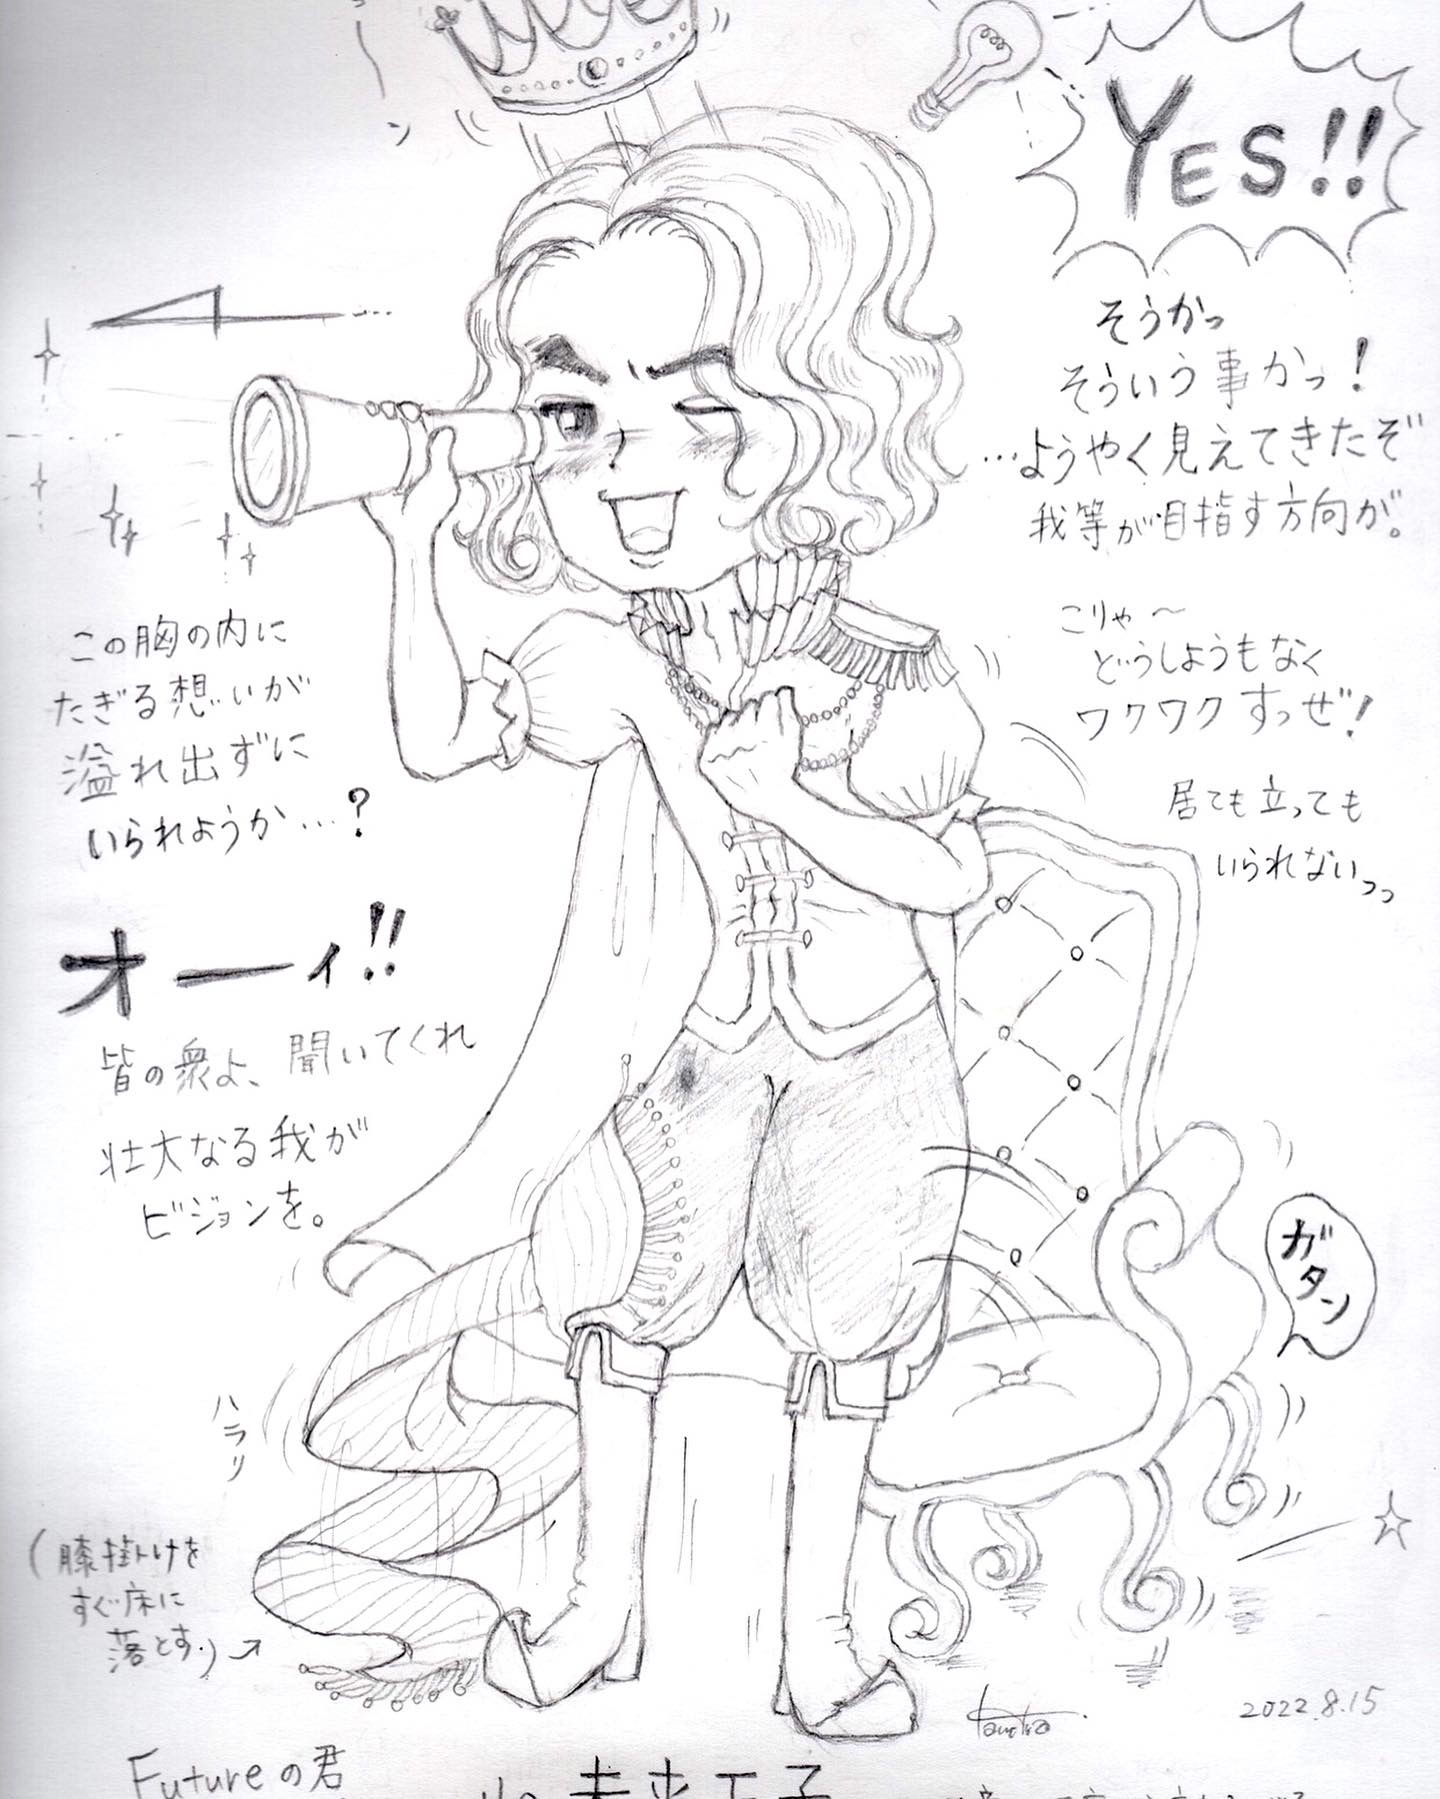 YES!!
そうかっ
そういう事かっ!
…ようやく見えてきたぞ
我等が目指す方向が。
こりゃ〜
どうしようもなく
ワクワクすっぜ!
居ても立っても
いられないっっ
この胸の内に
たぎる想いが
溢れ出ずに
いられようか…?
オーイ!!
皆の衆よ、聞いてくれ
壮大なる我が
ビジョンを。
ガタン
ハラリ
(膝掛けを
すぐ床に
落とす.)→
2022.8.15
Futureの君
未来王子